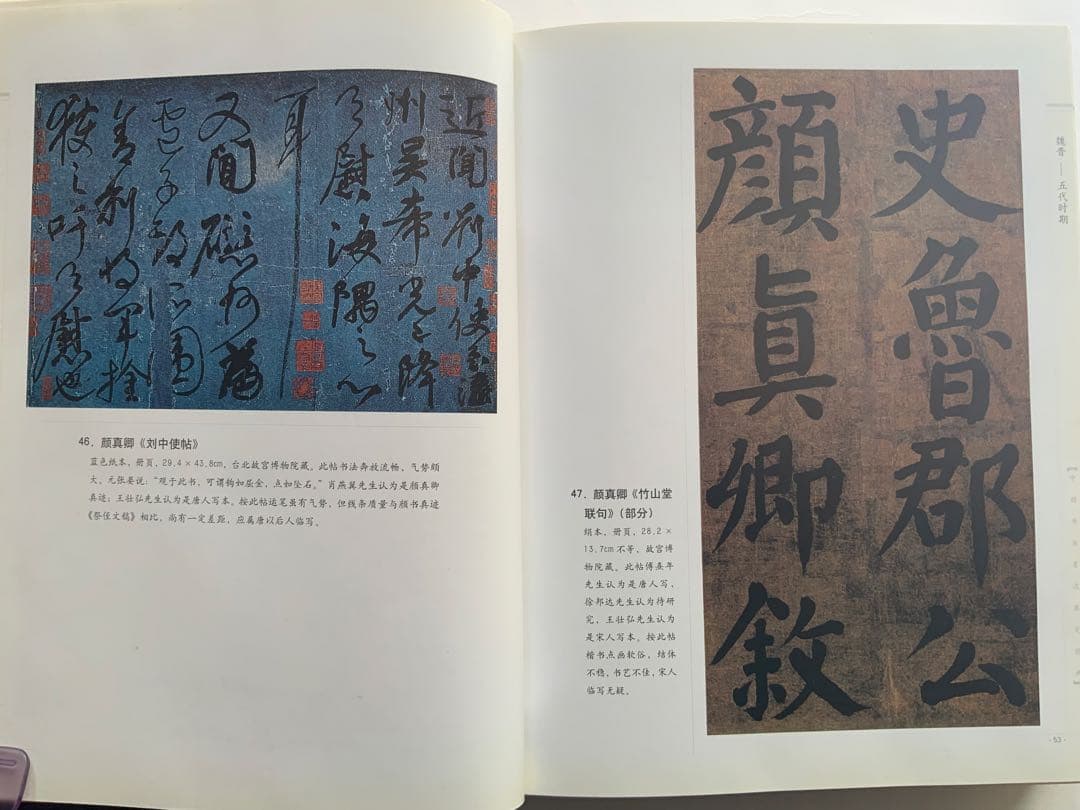 近聞劉中使至瀛
州吳希光已降
足慰海隅之心
耳
又聞礠州為
盧子期所圍
舍利將軍擒
獲之吁足慰也
46．颜真卿《刘中使帖》
蓝色纸本，册页，29.4×43.8cm，台北故宫博物院藏。此帖书法奔放流畅、气势颇
大。元张晏说：“观于此书，可谓钩如屈金，点如坠石。”肖燕翼先生认为是颜真卿
真迹；王壮弘先生认为是唐人写本。按此帖运笔虽有气势，但线条质量与颜书真迹
《祭侄文稿》相比，尚有一定差距，应属唐以后人临写。
47．颜真卿《竹山堂
联句》（部分）
绢本，册页，28.2×
13.7cm不等，故宫博
物院藏。此帖傅熹年
先生认为是唐人写，
徐邦达先生认为待研
究，王壮弘先生认为
是宋人写本。按此帖
楷书点画软俗，结体
不稳，书艺不佳，宋人
临写无疑。
史魯郡公
顏真卿敘
魏晋——五代时期
·53·